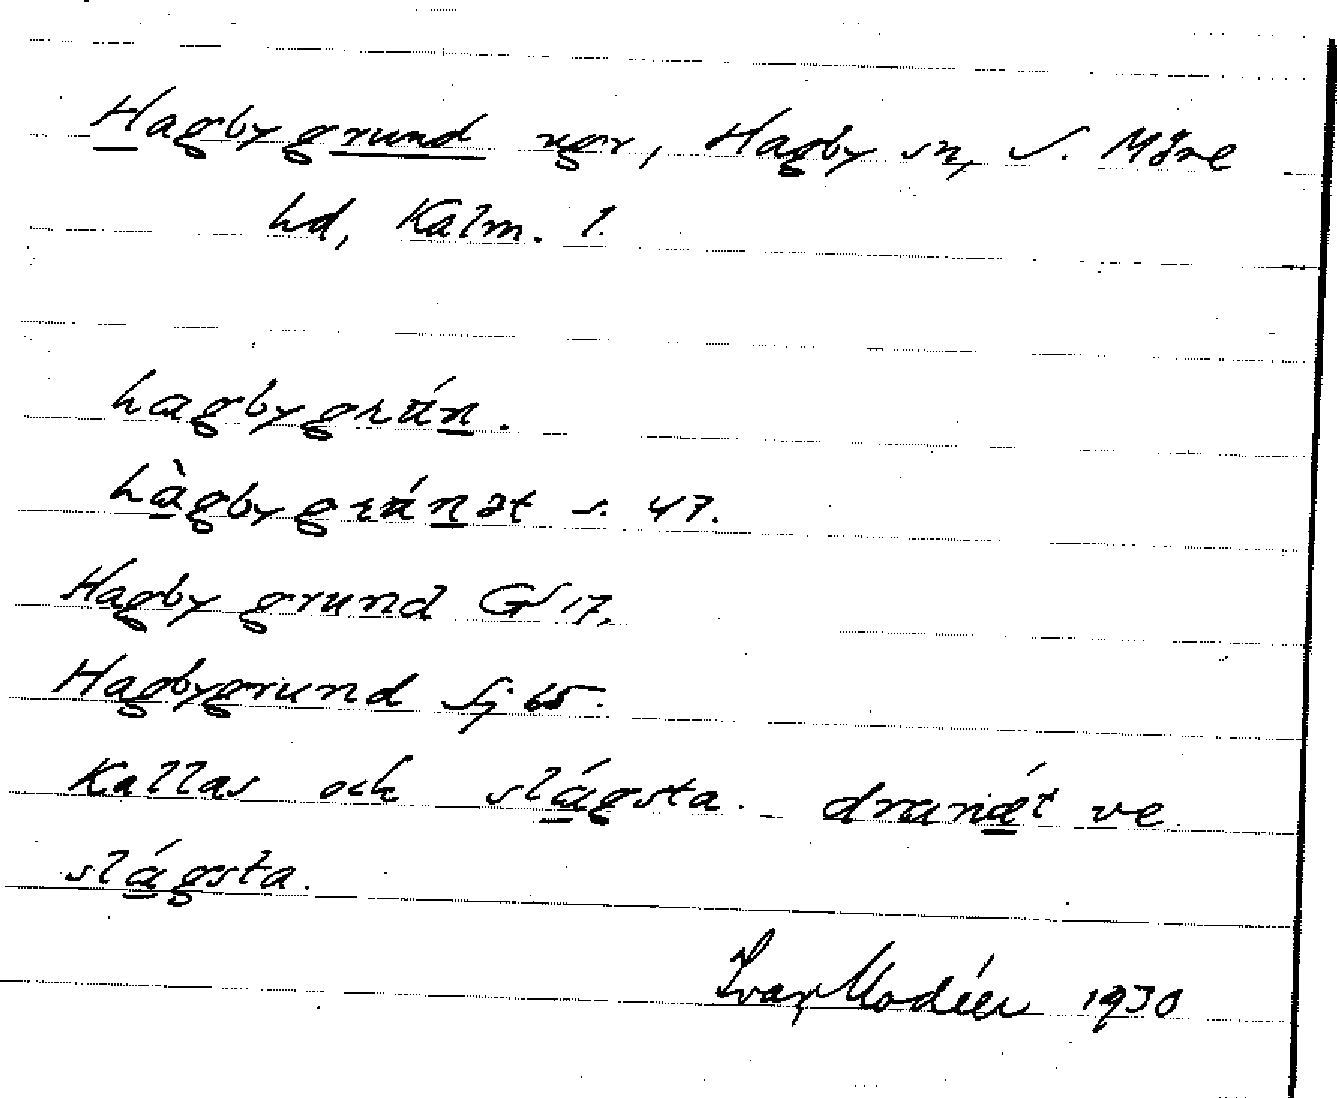 Hagbygrund ugr, Hagby sn, S. Möre
hd, Kalm. l.
hagbygrán.
hàgbygránət s. 47.
Hagby grund GS 17.
Hagbygrund Sj 65.
Kallas och slágsta. ve
slágsta.
Ivar Modéer 1930